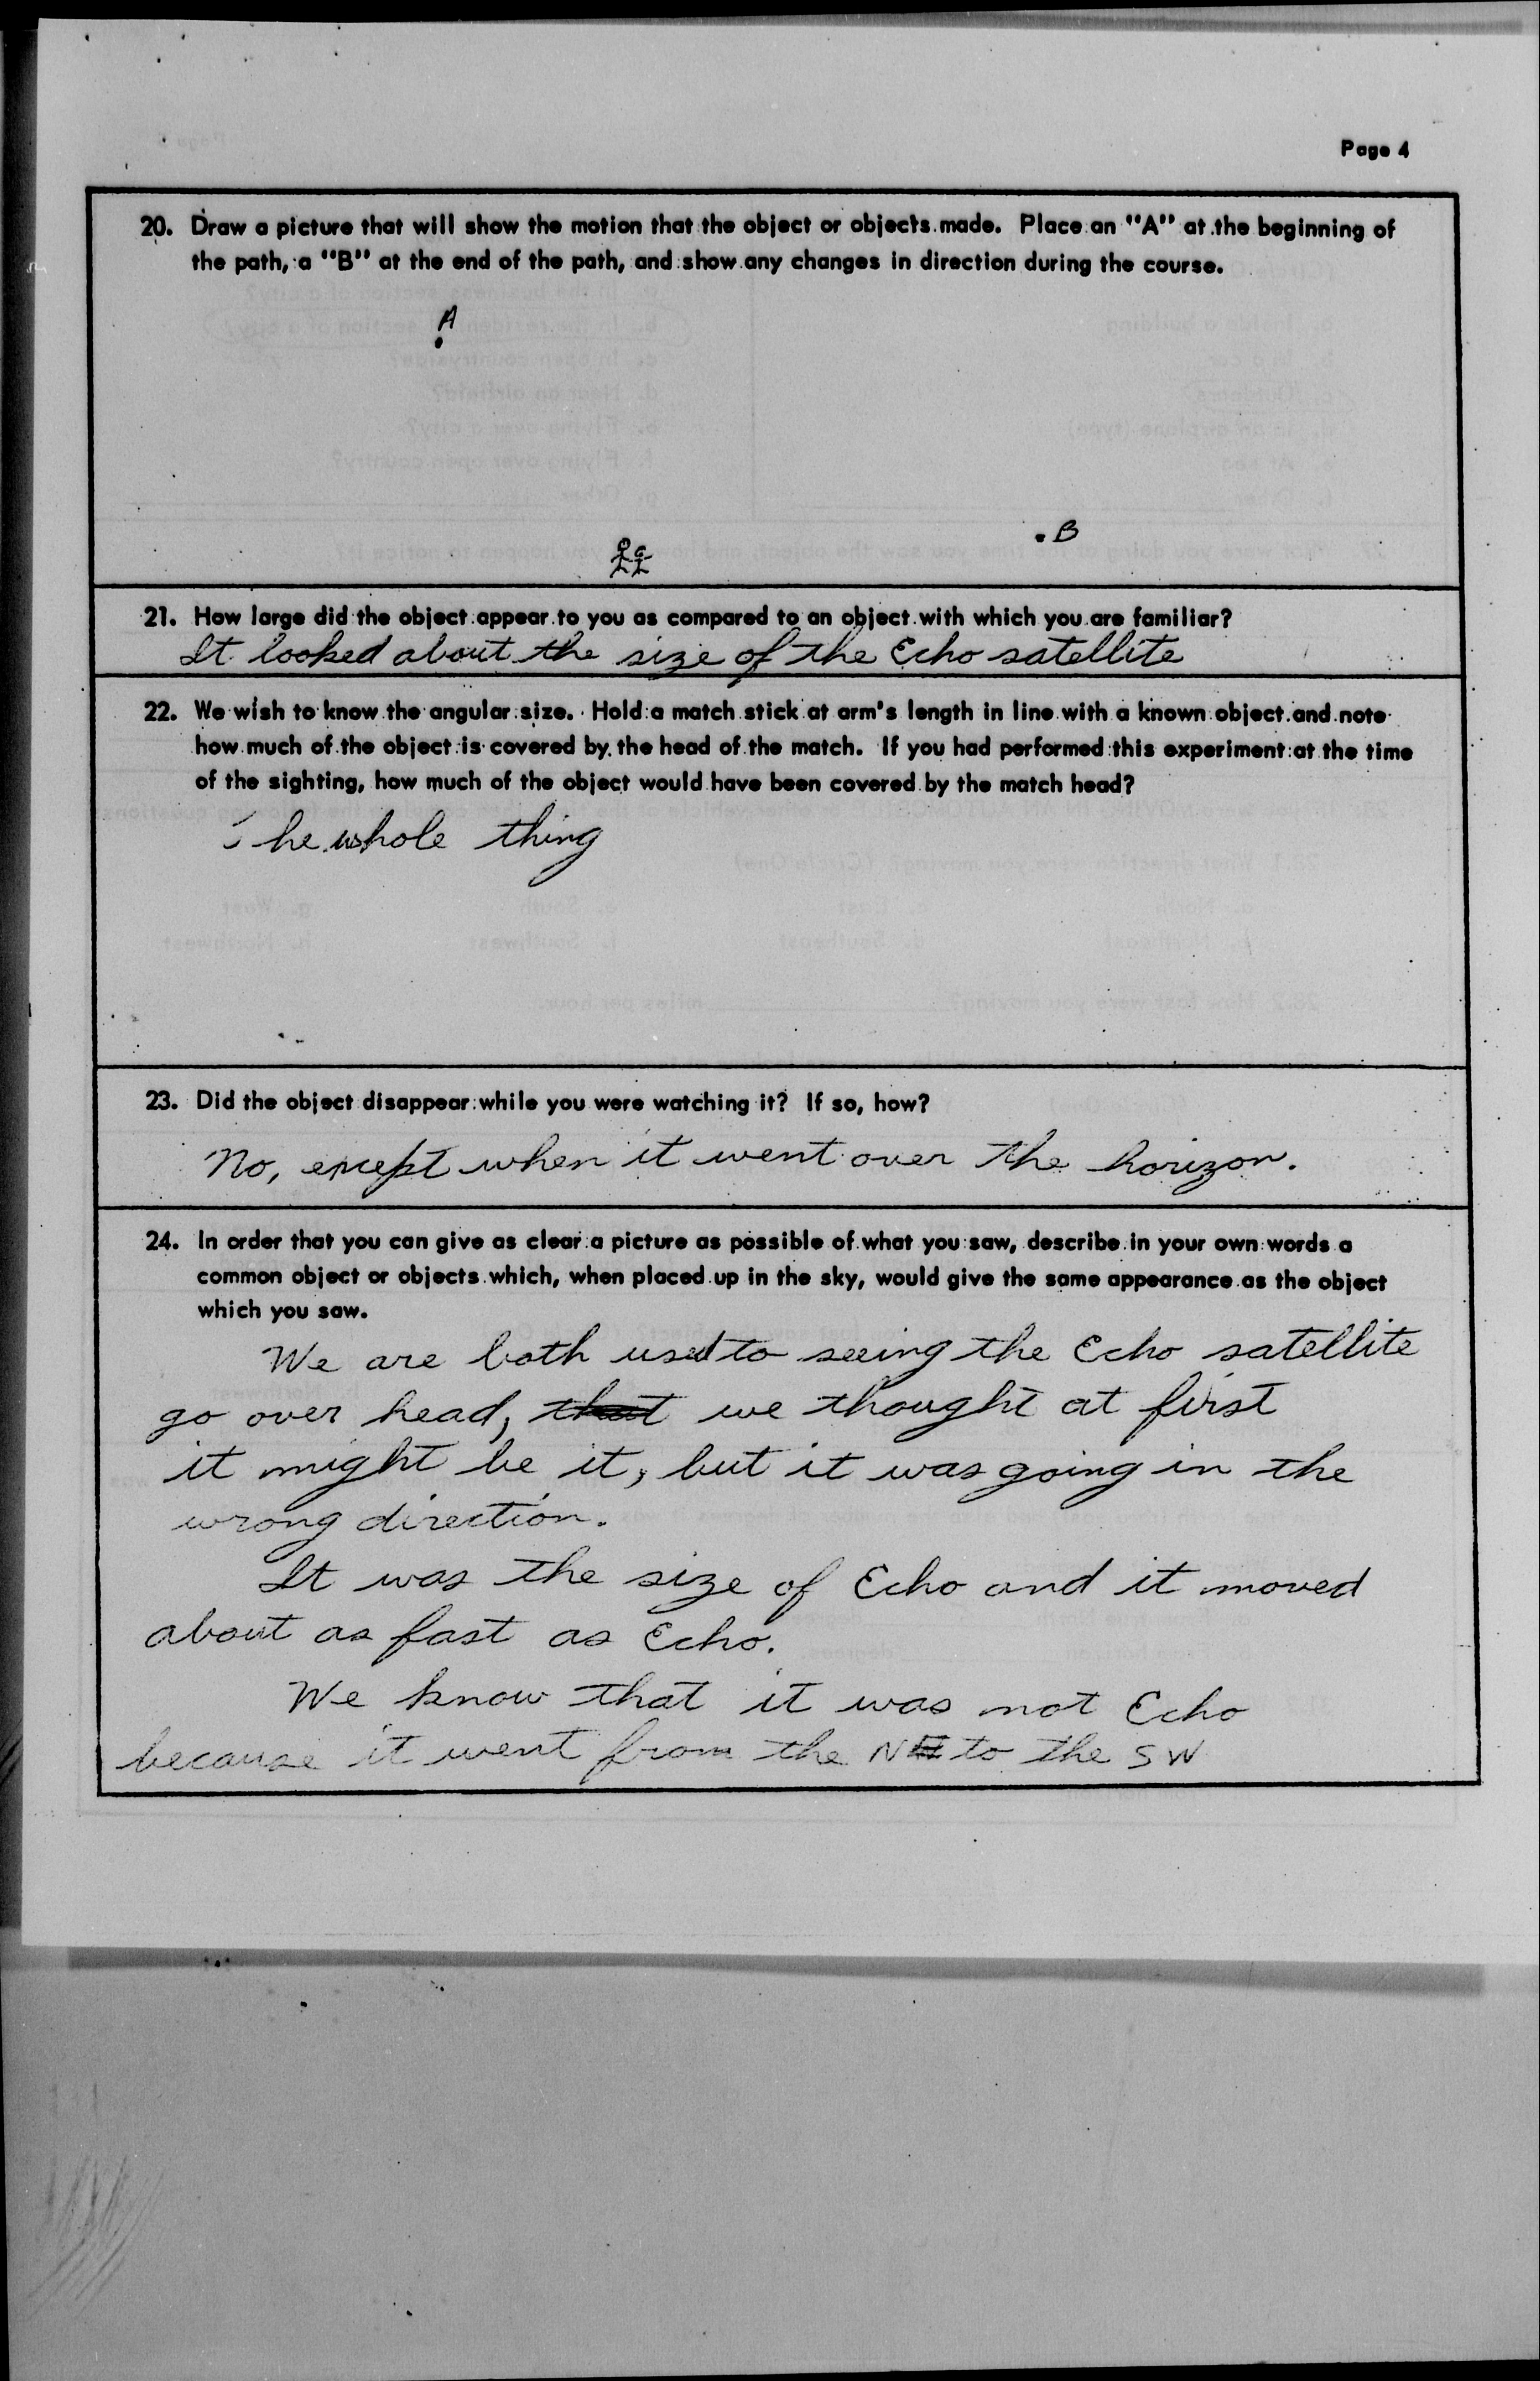 Page 4
20. Draw a picture that will show the motion that the object or objects made. Place an "A" at the beginning of
the path, a "B" at the end of the path, and show any changes in direction during the course.
A
B
21. How large did the object appear to you as compared to an object with which you are familiar?
It looked about the size of the Echo satellite
22. We wish to know the angular size. Hold a match stick at arm's length in line with a known object and note
how much of the object is covered by the head of the match. If you had performed this experiment at the time
of the sighting, how much of the object would have been covered by the match head?
The whole thing
23. Did the object disappear while you were watching it? If so, how?
No, except when it went over the horizon.
24. In order that you can give as clear a picture as possible of what you saw, describe in your own words a
common object or objects which, when placed up in the sky, would give the same appearance as the object
which you saw.
We are both used to seeing the Echo satellite
go over head, that we thought at first
it might be it, but it was going in the
wrong direction.
It was the size of Echo and it moved
about as fast as Echo.
We know that it was not Echo
because it went from the N to the SW